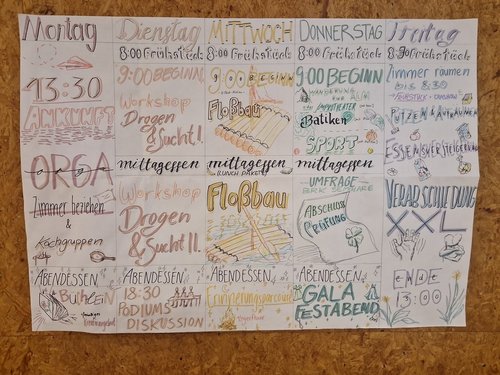 Montag
13:30
ANKUNFT
ORGA
Zimmer beziehen
&
Kochgruppen
ABENDESSEN
Dienstag
8:00 Frühstück
9:00 BEGINN
Workshop
Drogen
& Sucht I.
mittagessen
Workshop
Drogen
& Sucht II.
ABENDESSEN
18:30
PODIUMS
DISKUSSION
MITTWOCH
8:00 Frühstück
9:00 BEGINN
Floßbau
mittagessen
(LUNCH PAKET)
Floßbau
ABENDESSEN
DONNERSTAG
8:00 Frühstück
9:00 BEGINN
WANDERUNG
Batiken
SPORT
mittagessen
UMFRAGE
ABSCHLUSS
PRÜFUNG
ABENDESSEN
GALA
FESTABEND
Freitag
8:00 Frühstück
Zimmer räumen
BIS 8:30
PUTZEN & AUFRÄUMEN
ESSENSVERSTEIGERUNG
VERABSCHIEDUNG
XXL
ende
13:00